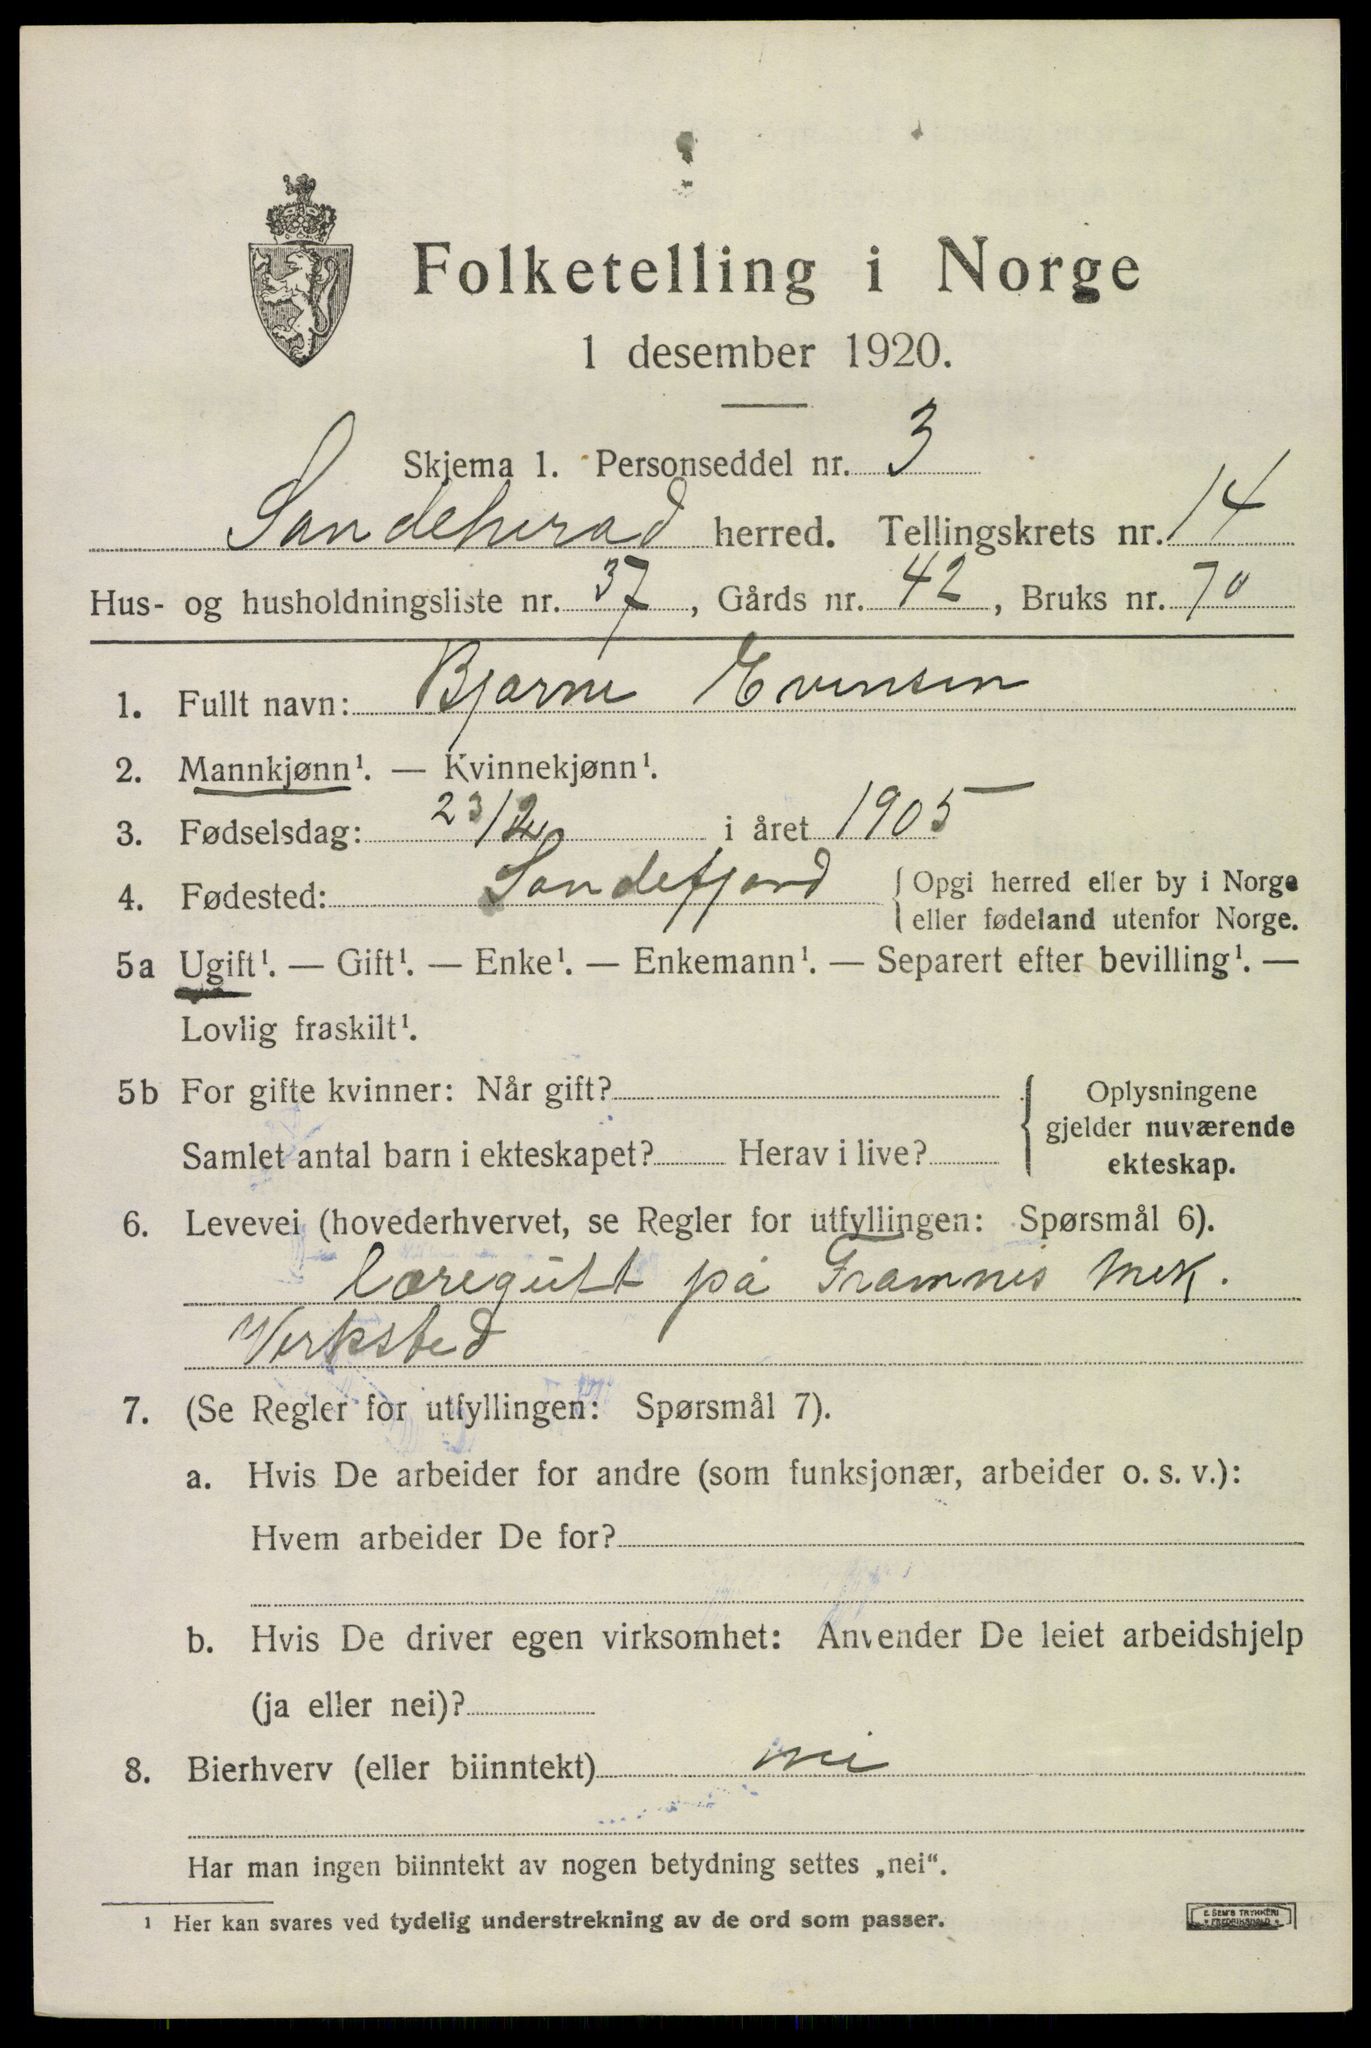 Folketelling i Norge
1 desember 1920.
Skjema 1. Personseddel nr. 3
Sandeherad herred. Tellingskrets nr. 14
Hus- og husholdningsliste nr. 37, Gårds nr. 42, Bruks nr. 70
1. Fullt navn: Bjarne Evensen
2. Mannkjønn¹. — Kvinnekjønn¹.
3. Fødselsdag: 23/2 i året 1905
4. Fødested: Sandefjord {Opgi herred eller by i Norge
eller fødeland utenfor Norge.
5a Ugift¹. — Gift¹. — Enke¹. — Enkemann¹. — Separert efter bevilling¹. —
Lovlig fraskilt¹.
5b For gifte kvinner: Når gift?
Samlet antal barn i ekteskapet? Herav i live?
{ Oplysningene
gjelder nuværende
ekteskap.
6. Levevei (hovederhvervet, se Regler for utfyllingen: Spørsmål 6).
læregutt på Framnes Mek.
Verksted
7. (Se Regler for utfyllingen: Spørsmål 7).
a. Hvis De arbeider for andre (som funksjonær, arbeider o. s. v.):
Hvem arbeider De for?
b. Hvis De driver egen virksomhet: Anvender De leiet arbeidshjelp
(ja eller nei)?
8. Bierhverv (eller biinntekt) nei
Har man ingen biinntekt av nogen betydning settes „nei“.
¹ Her kan svares ved tydelig understrekning av de ord som passer.
E. SEM'S TRYKKERI
FREDRIKSHALD